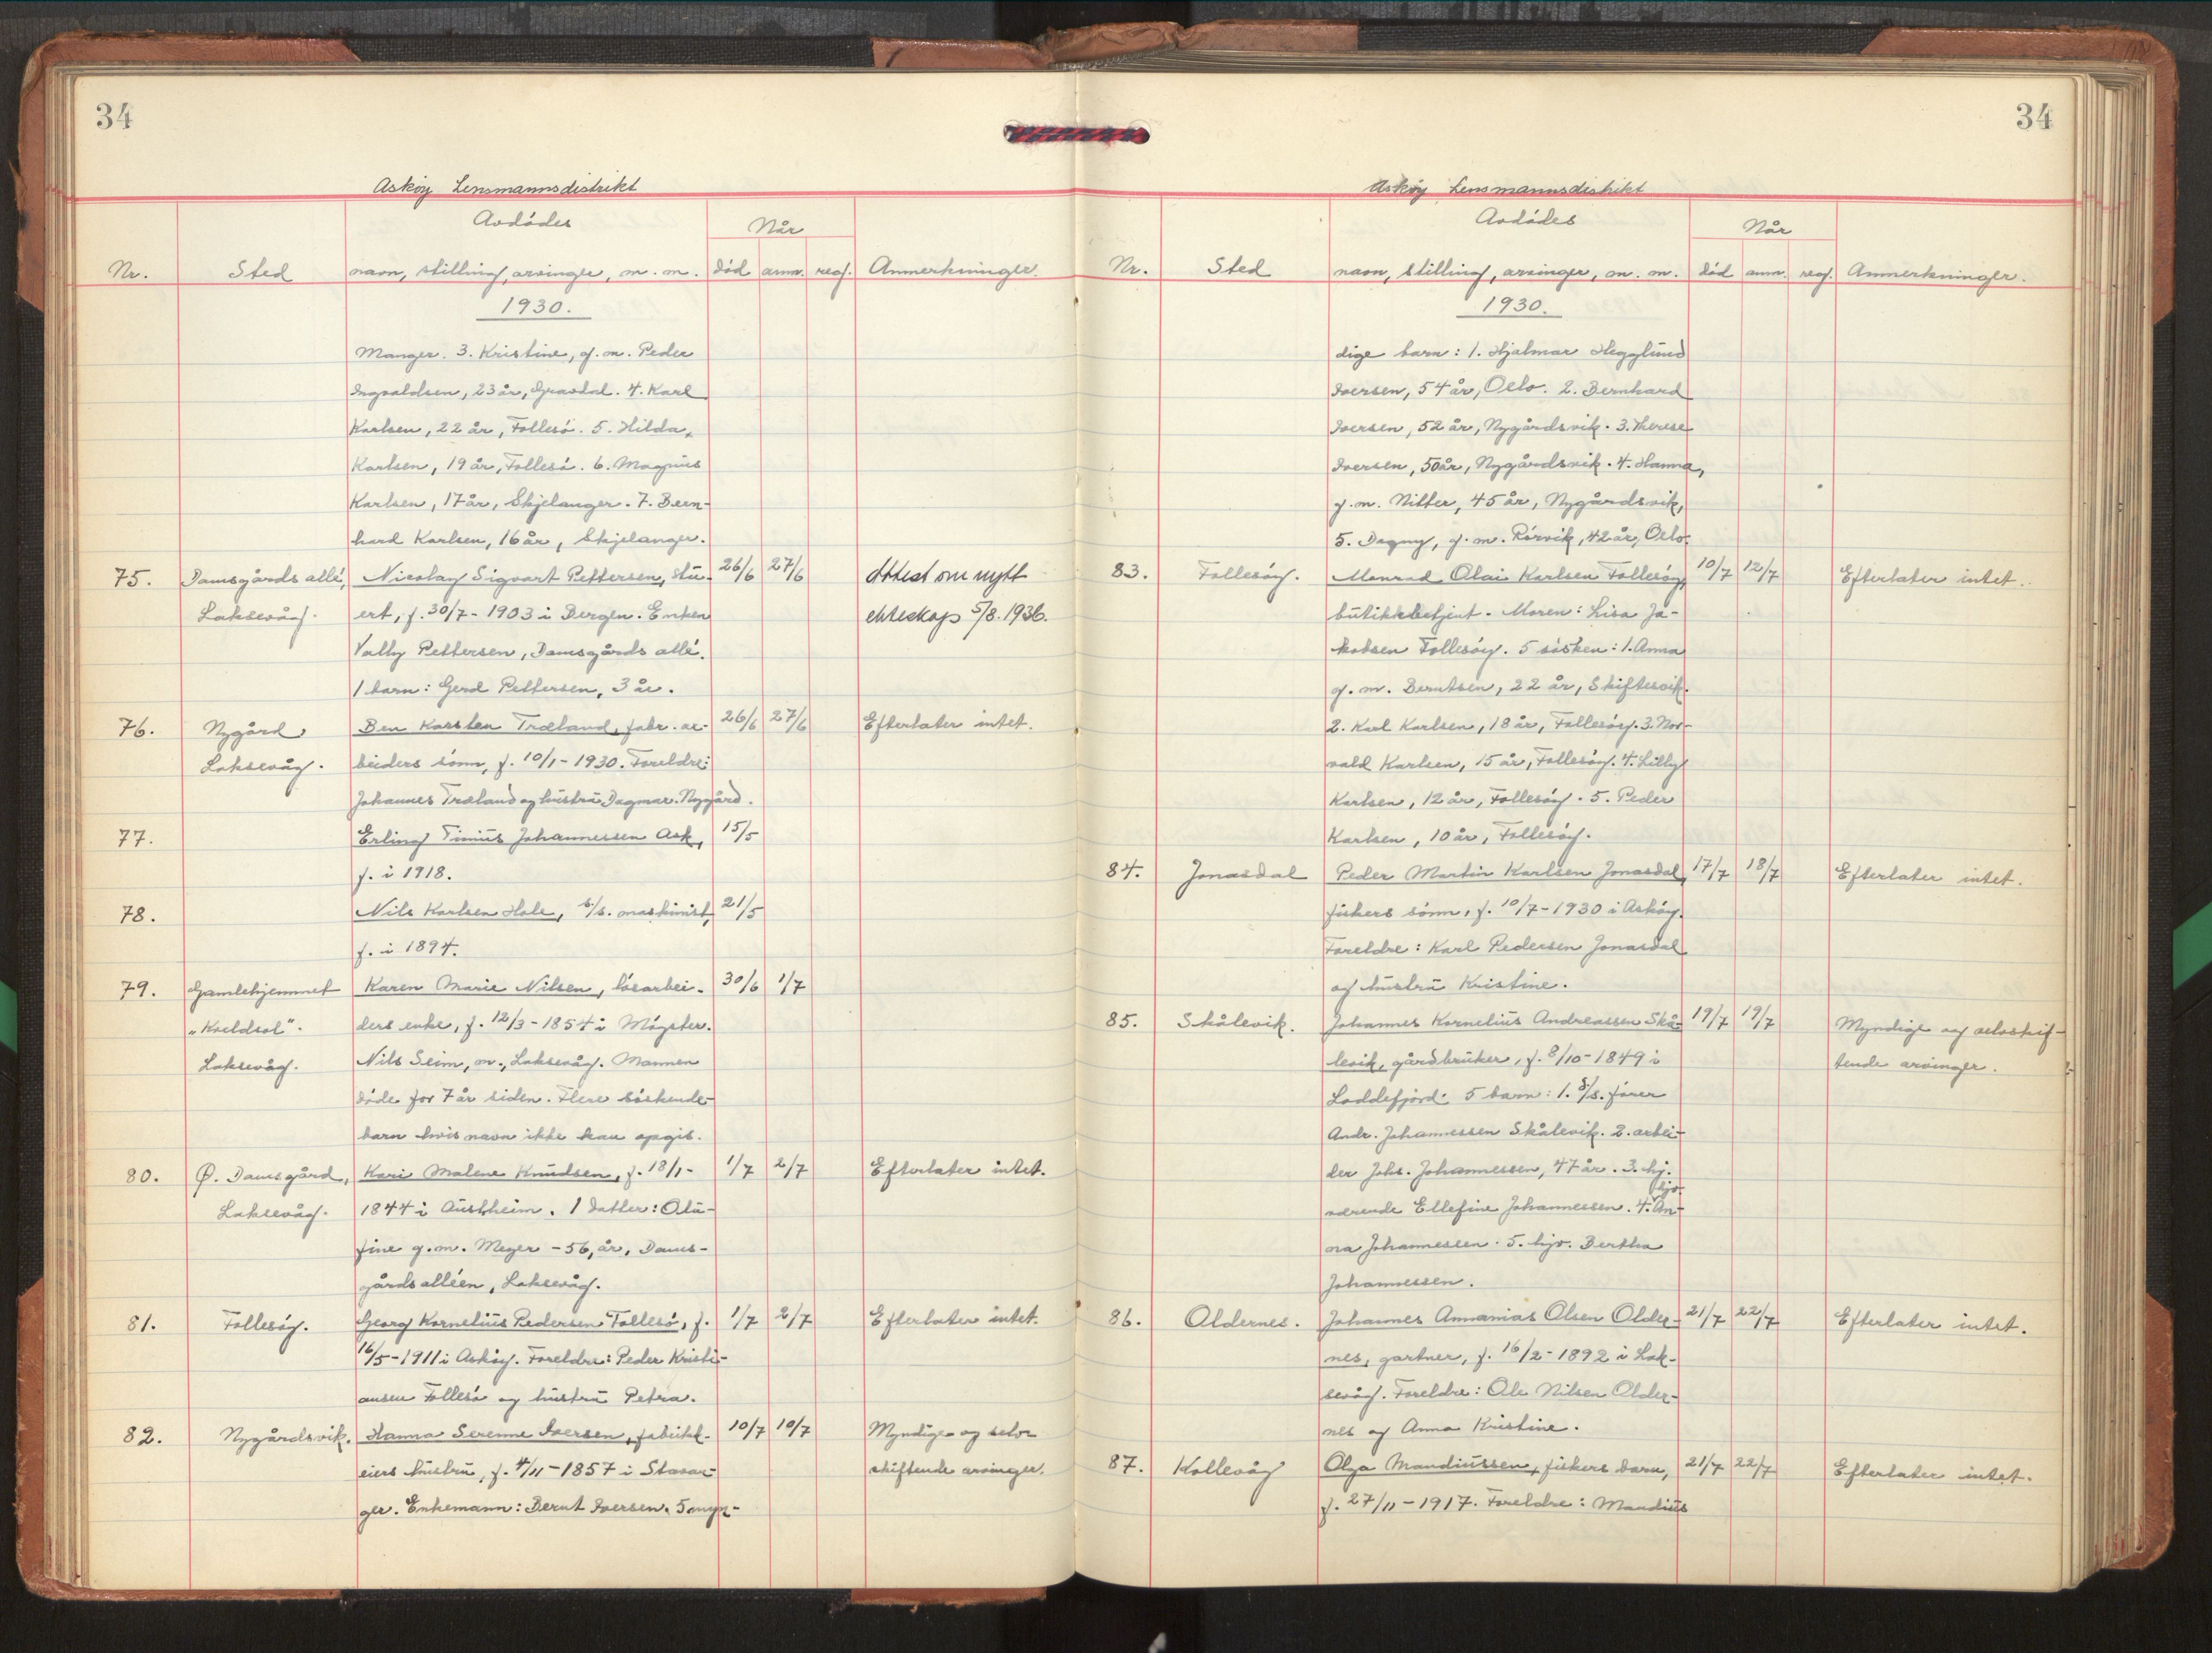 34
Askøy Lensmannsdistrikt
Avdødes
Når
Nr. Sted navn, stilling, arvinger, m. m. død anm. reg. Anmerkninger.
1930.
Manger. 3. Kristine, g. m. Peder
Ingvaldsen, 23 år, Gravdal. 4. Karl
Karlsen, 22 år, Follesø. 5. Hilda
Karlsen, 19 år, Follesø. 6. Magnus
Karlsen, 17 år, Skjelanger. 7. Bern-
hard Karlsen, 16 år, Skjelanger.
75. Damsgårds allé, Nicolay Sigvart Pettersen, stu- 26/6 27/6 Attest om nytt
Laksevåg. ert, f. 30/7 - 1903 i Bergen. Enken ekteskap 5/8. 1936.
Vally Pettersen, Damsgårds allé.
1 barn: Gerd Pettersen, 3 år.
76. Nygård, Ben Karsten Træland, fabr. ar- 26/6 27/6 Efterlater intet.
Laksevåg. beiders sønn, f. 10/1 - 1930. Foreldre:
Johannes Træland og hustru Dagmar. Nygård.
77. Erling Tinius Johannessen Ask, 15/5
f. i 1918.
78. Nils Karlsen Hole, s/s. maskinist, 21/5
f. i 1894.
79. Gamlehjemmet Karen Marie Nilsen, løsarbei- 30/6 1/7
"Kveldsol". ders enke, f. 12/3 - 1854 i Møgster.
Laksevåg. Nils Seim, m., Laksevåg. Mannen
døde for 7 år siden. Flere søskende-
barn hvis navn ikke kan opgis.
80. Ø. Damsgård, Kari Malene Knudsen, f. 18/1 - 1/7 2/7 Efterlater intet.
Laksevåg. 1844 i Austrheim. 1 datter: Olu-
fine g. m. Meyer - 56, år, Dams-
gårdsalléen, Laksevåg.
81. Follesøy. Georg Kornelius Pedersen Follesø, f. 1/7 2/7 Efterlater intet.
16/5 - 1911 i Askøy. Foreldre: Peder Kristi-
ansen Follesø og hustru Petra.
82. Nygårdsvik. Hanna Serenne Iversen, fabrikk- 10/7 10/7 Myndige og selv-
eiers hustru, f. 4/11 - 1857 i Stavan- skiftende arvinger.
ger. Enkemann: Bernt Iversen. 5 myn-
34
Askøy Lensmannsdistrikt
Avdødes
Når
Nr. Sted navn, stilling, arvinger, m. m. død anm. reg. Anmerkninger.
1930.
dige barn: 1. Hjalmar Hegglund
Iversen, 54 år, Oslo. 2. Bernhard
Iversen, 52 år, Nygårdsvik. 3. Therese
Iversen, 50 år, Nygårdsvik. 4. Hanna,
g. m. Nitter, 45 år, Nygårdsvik,
5. Dagny, g. m. Rørvik, 42 år, Oslo.
83. Follesøy. Monrad Olai Karlsen Follesøy, 10/7 12/7 Efterlater intet.
butikkbetjent. Moren: Lisa Ja-
kobsen Follesøy. 5 søsken: 1. Anna
g. m. Berntsen, 22 år, Skiftesvik.
2. Karl Karlsen, 18 år, Follesøy. 3. Nor-
vald Karlsen, 15 år, Follesøy. 4. Lilly
Karlsen, 12 år, Follesøy. 5. Peder
Karlsen, 10 år, Follesøy.
84. Jonasdal Peder Martin Karlsen Jonasdal, 17/7 18/7 Efterlater intet.
fiskers sønn, f. 10/7 - 1930 i Askøy.
Foreldre: Karl Pedersen Jonasdal
og hustru Kristine.
85. Skålevik. Johannes Kornelius Andreassen Skå- 19/7 19/7 Myndige og selvskif-
levik, gårdbruker, f. 8/10 - 1849 i tende arvinger.
Loddefjord. 5 barn: 1. s/s. fører
Andr. Johannessen Skålevik. 2. arbei-
der Johs. Johannessen, 47 år. 3. hj.
værende Ellefine Johannessen. 4. hjv. An-
na Johannessen. 5. hjv. Bertha
Johannessen.
86. Oldernes. Johannes Annanias Olsen Older- 21/7 22/7 Efterlater intet.
nes, gartner, f. 16/2 - 1892 i Lak-
sevåg. Foreldre: Ole Nilsen Older-
nes og Anna Kristine.
87. Kollevåg Olga Mandiussen, fiskers barn, 21/7 22/7 Efterlater intet.
f. 27/11 - 1917. Foreldre: Mandius